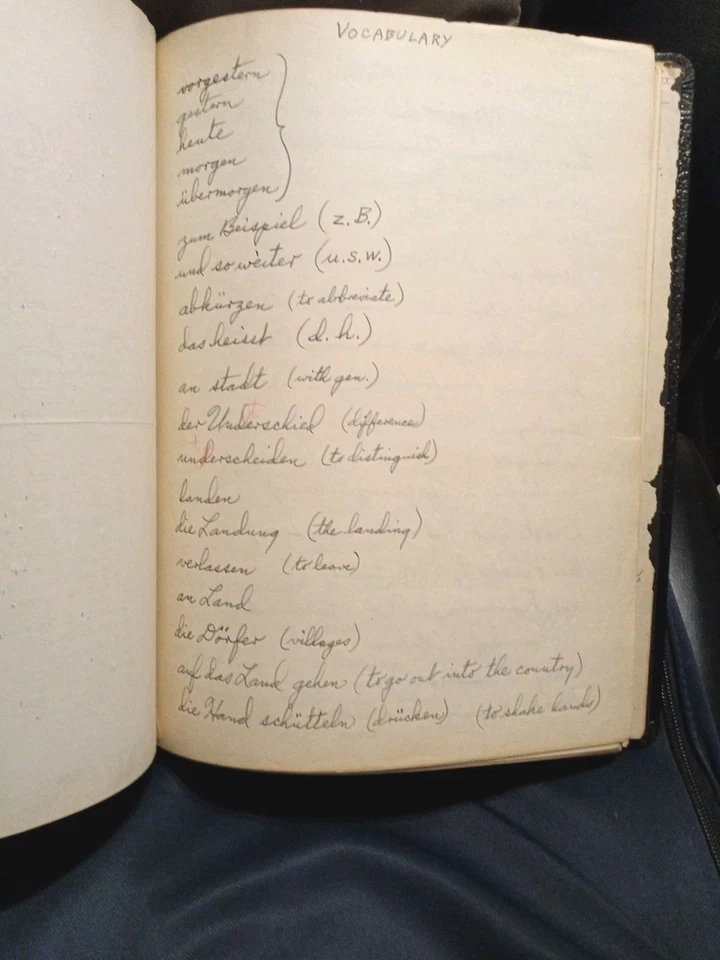 VOCABULARY
vorgestern
gestern
heute
morgen
übermorgen
zum Beispiel (z.B.)
und so weiter (u.s.w.)
abkürzen (to abbreviate)
das heisst (d.h.)
an stadt (with gen.)
der Underschied (difference)
underscheiden (to distinguish)
landen
die Landung (the landing)
verlassen (to leave)
an Land
die Dörfer (villages)
auf das Land gehen (to go out into the country)
die Hand schütteln (drücken) (to shake hands)